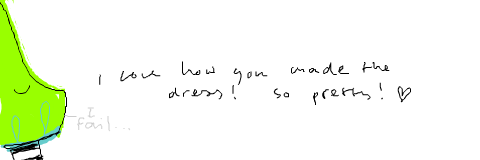 i love how you made the
dress! so pretty! ♡
I
fail...